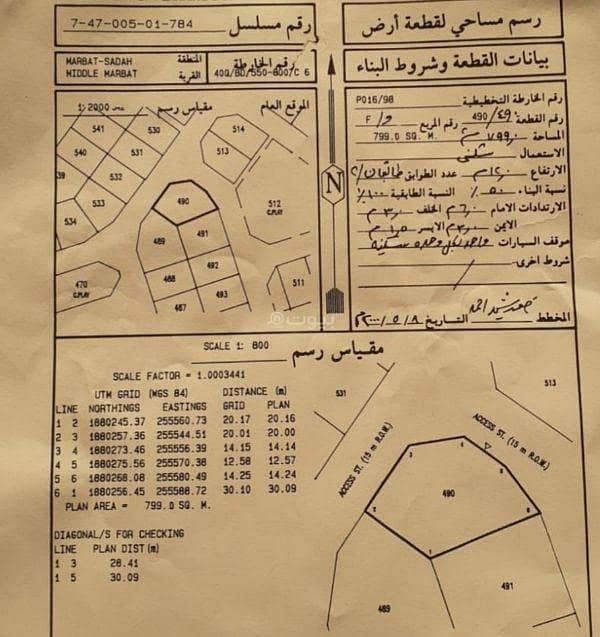 7-47-005-01-784
رقم مسلسل
رسم مساحي لقطعة أرض
MARBAT-SADAH
المنطقة
MIDDLE MARBAT
القرية
رقم الخارطة
40Q/BD/550-800/C 6
بيانات القطعة وشروط البناء
1: 2000
مقياس رسم
الموقع العام
541
530
540
531
532
533
534
514
513
490
512
C.PLAY
489
491
488
492
487
493
470
C.PLAY
511
N
رقم الخارطة التخطيطية P016/98
رقم القطعة 490/٤٩٠ رقم المربع F / و
المساحة ٧٩٩,٠ م٢
799.0 SQ. M.
الاستعمال سكني
الارتفاع ١٢,٠ م عدد الطوابق طابقان/٢
نسبة البناء ٥٠٪ النسبة الطابقية ١٠٠٪
الارتدادات الامام ٦,٠ م الخلف ٣,٠ م
الايمن ٣,٠ م الايسر ١,٥ م
موقف السيارات واحد لكل وحده سكنية
شروط اخرى
المخطط التاريخ ٢٠٠٠/٥/٨ م
SCALE 1: 800
مقياس رسم
SCALE FACTOR = 1.0003441
UTM GRID (WGS 84) DISTANCE (m)
LINE NORTHINGS EASTINGS GRID PLAN
1 2 1880245.37 255560.73 20.17 20.16
2 3 1880257.36 255544.51 20.01 20.00
3 4 1880273.46 255556.39 14.15 14.14
4 5 1880275.56 255570.38 12.58 12.57
5 6 1880268.08 255580.49 14.25 14.24
6 1 1880256.45 255588.72 30.10 30.09
PLAN AREA = 799.0 SQ. M.
DIAGONAL/S FOR CHECKING
LINE PLAN DIST(m)
1 3 28.41
1 5 30.09
531
513
ACCESS ST. (15 m R.O.W.)
ACCESS ST. (15 m R.O.W.)
3
4
5
2
490
6
1
491
489
بيوت